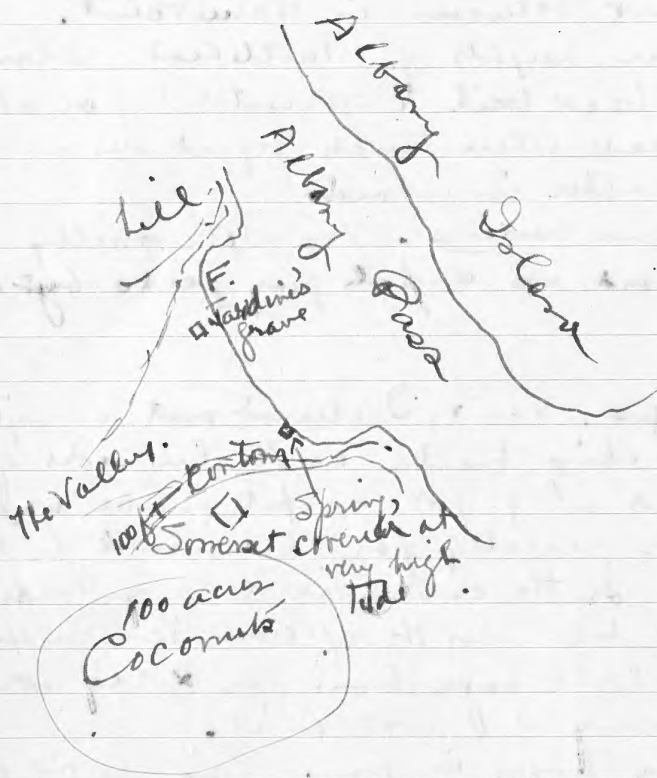 Albany
Island
Albany
Pass
Hill
F.
Jardine's
grave
The Valley.
100 ft Contour
Somerset
Spring,
covered at
very high
tide.
100 acres
Coconuts